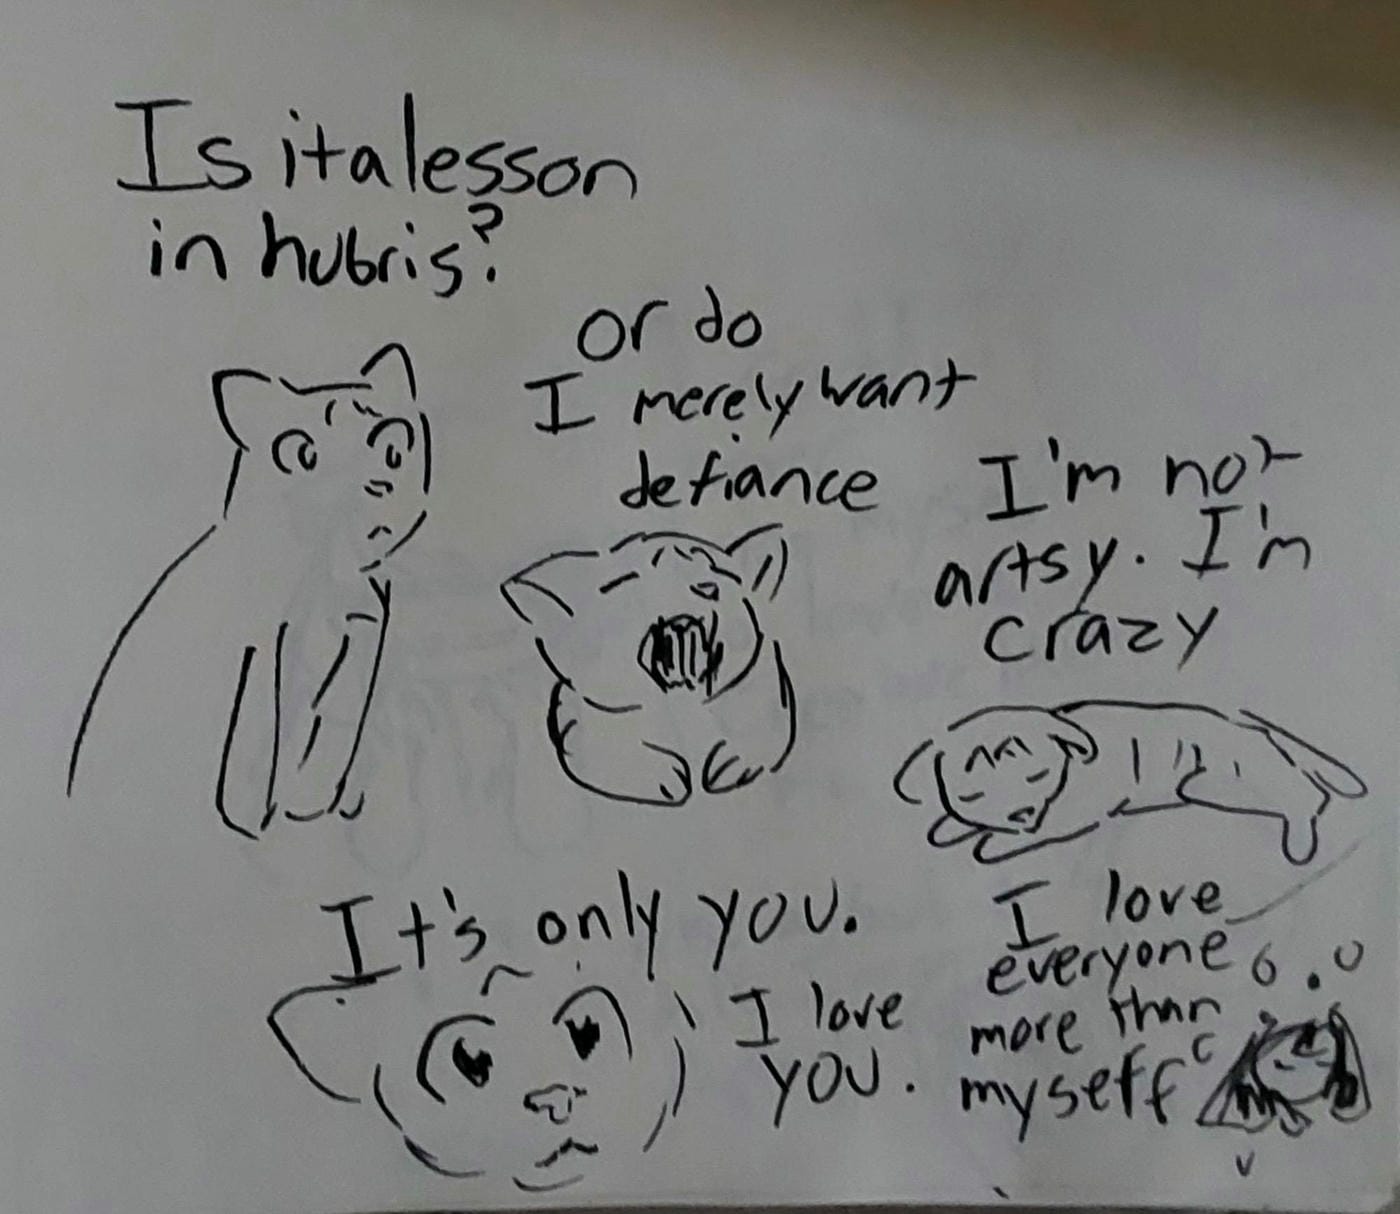 Is it a lesson
in hubris?
or do
I merely want
defiance
I'm not
artsy. I'm
crazy
It's only you.
I love
you.
I love
everyone
more than
myself